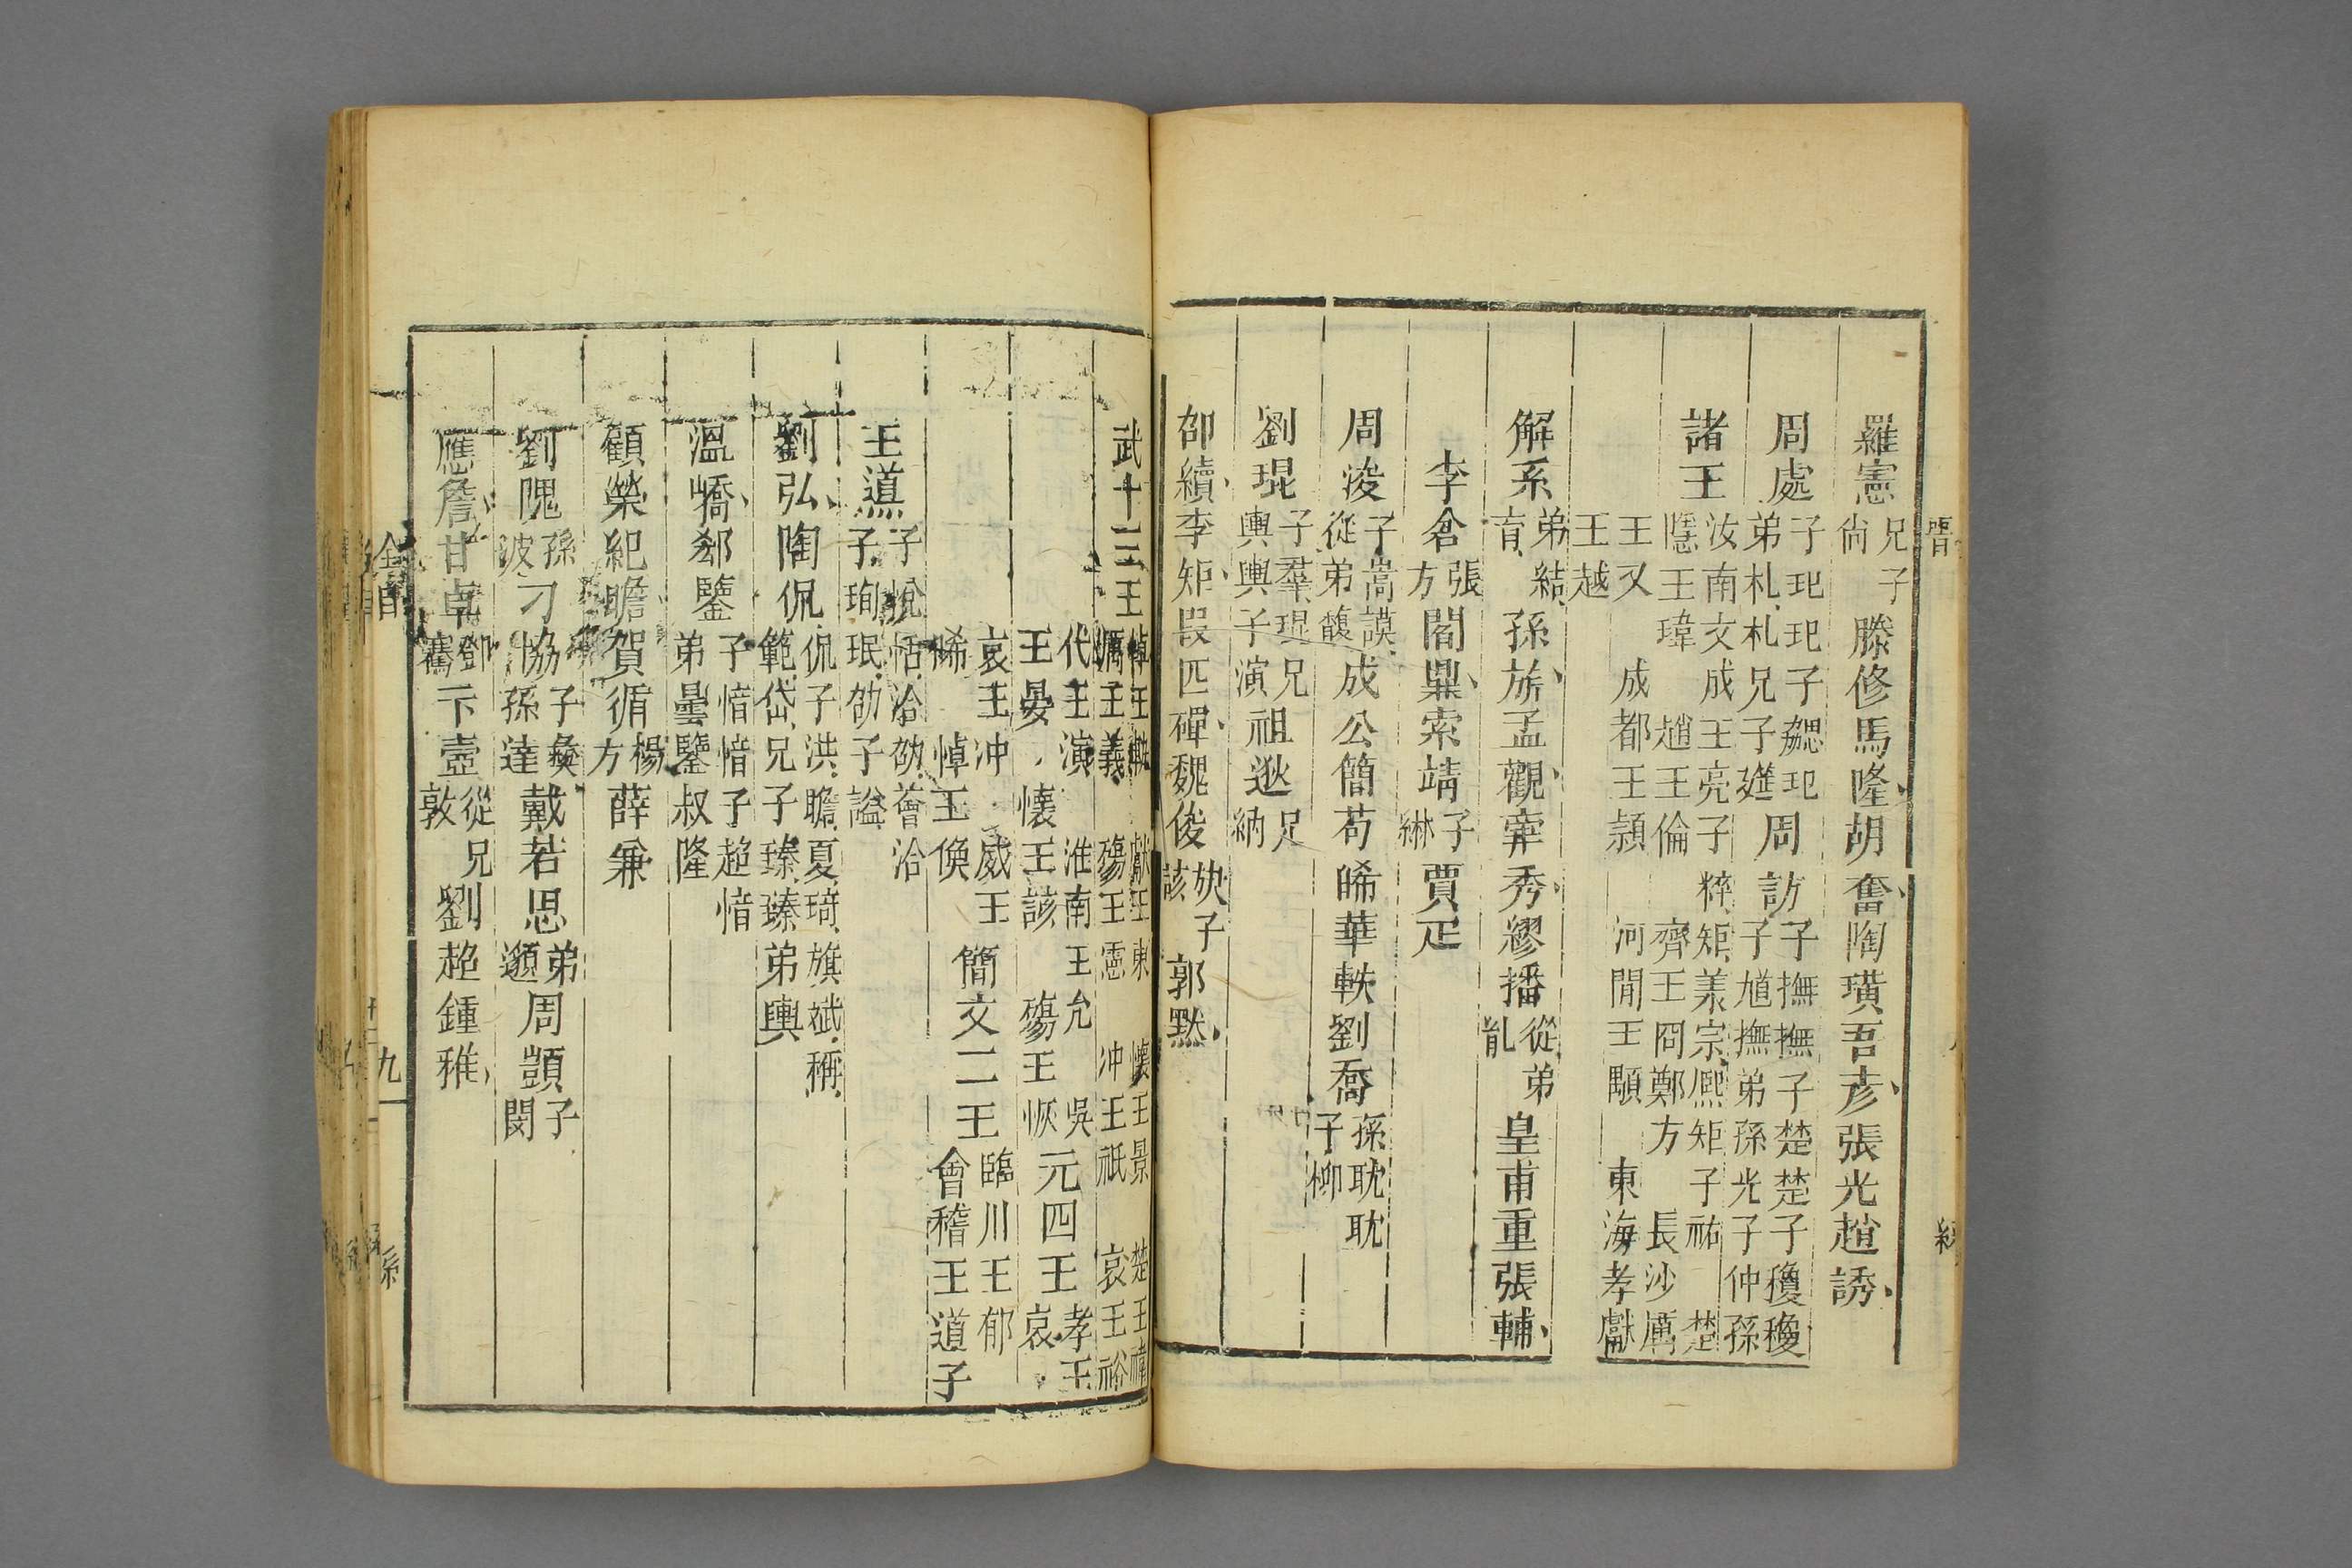 羅憲兄子尚滕修馬隆胡奮陶璜吾彥張光趙誘
周處子玘玘子勰玘弟札札兄子莚周訪子撫撫子楚楚子瓊瓊子馗撫弟孫光子仲孫
諸王汝南文成王亮子粹矩羕宗熙矩子祐楚隱王瑋趙王倫齊王冏鄭方長沙厲
王乂成都王穎河間王顒東海孝獻王越
解系弟結育孫旂孟觀牽秀繆播從弟胤皇甫重張輔
李含張方閻鼎索靖子綝賈疋
周浚子嵩謨從弟馥成公簡苟晞華軼劉喬孫耽耽子柳
劉琨子羣琨兄輿輿子演祖逖兄納
邵續李矩段匹磾魏浚族子該郭默
武十三王悼王軌獻王東懷王景楚王禕厲王義殤王憲冲王祇哀王裕
代王演淮南王允吳王晏懷王該殤王恢元四王孝王哀
哀王冲威王晞悼王煥簡文二王臨川王郁會稽王道子
王導子悅恬洽劭薈洽子珣珉劭子謐
劉弘陶侃侃子洪瞻夏琦旗斌稱範岱兄子臻臻弟輿
溫嶠郗鑒子愔愔子超愔弟曇鑒叔隆
顧榮紀瞻賀循楊方薛兼
劉隗孫波刁協子彝孫逵戴若思弟邈周顗子閔
應詹甘卓鄧騫卞壼從兄敦劉超鍾雅
全目
九